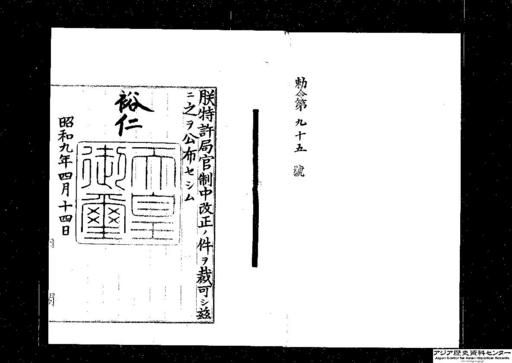 勅令第九十五號
朕特許局官制中改正ノ件ヲ裁可シ茲
ニ之ヲ公布セシム
裕仁
天皇
御璽
昭和九年四月十四日
アジア歴史資料センター
Japan Center for Asian Historical Records